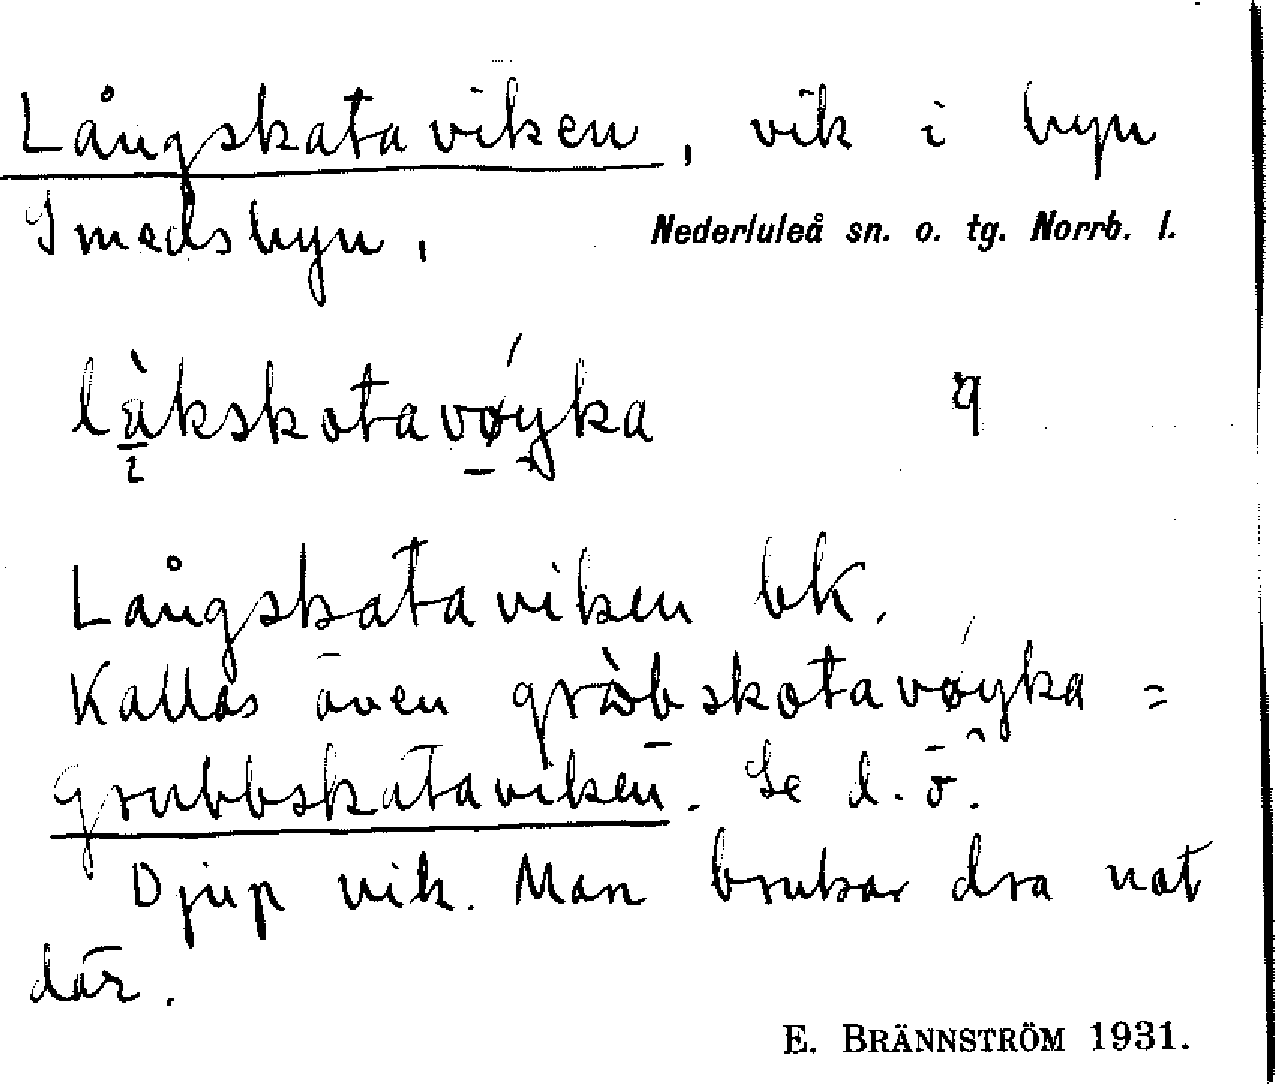 Långskataviken, vik i byn
Smedsbyn.
Nederluleå sn. o. tg. Norrb. l.
làkskotavǿyka
Långskataviken bk.
Kallas även gròbskotavøyka =
Grubbskataviken. Se d. o.
Djup vik. Man brukar dra not
där.
E. BRÄNNSTRÖM 1931.